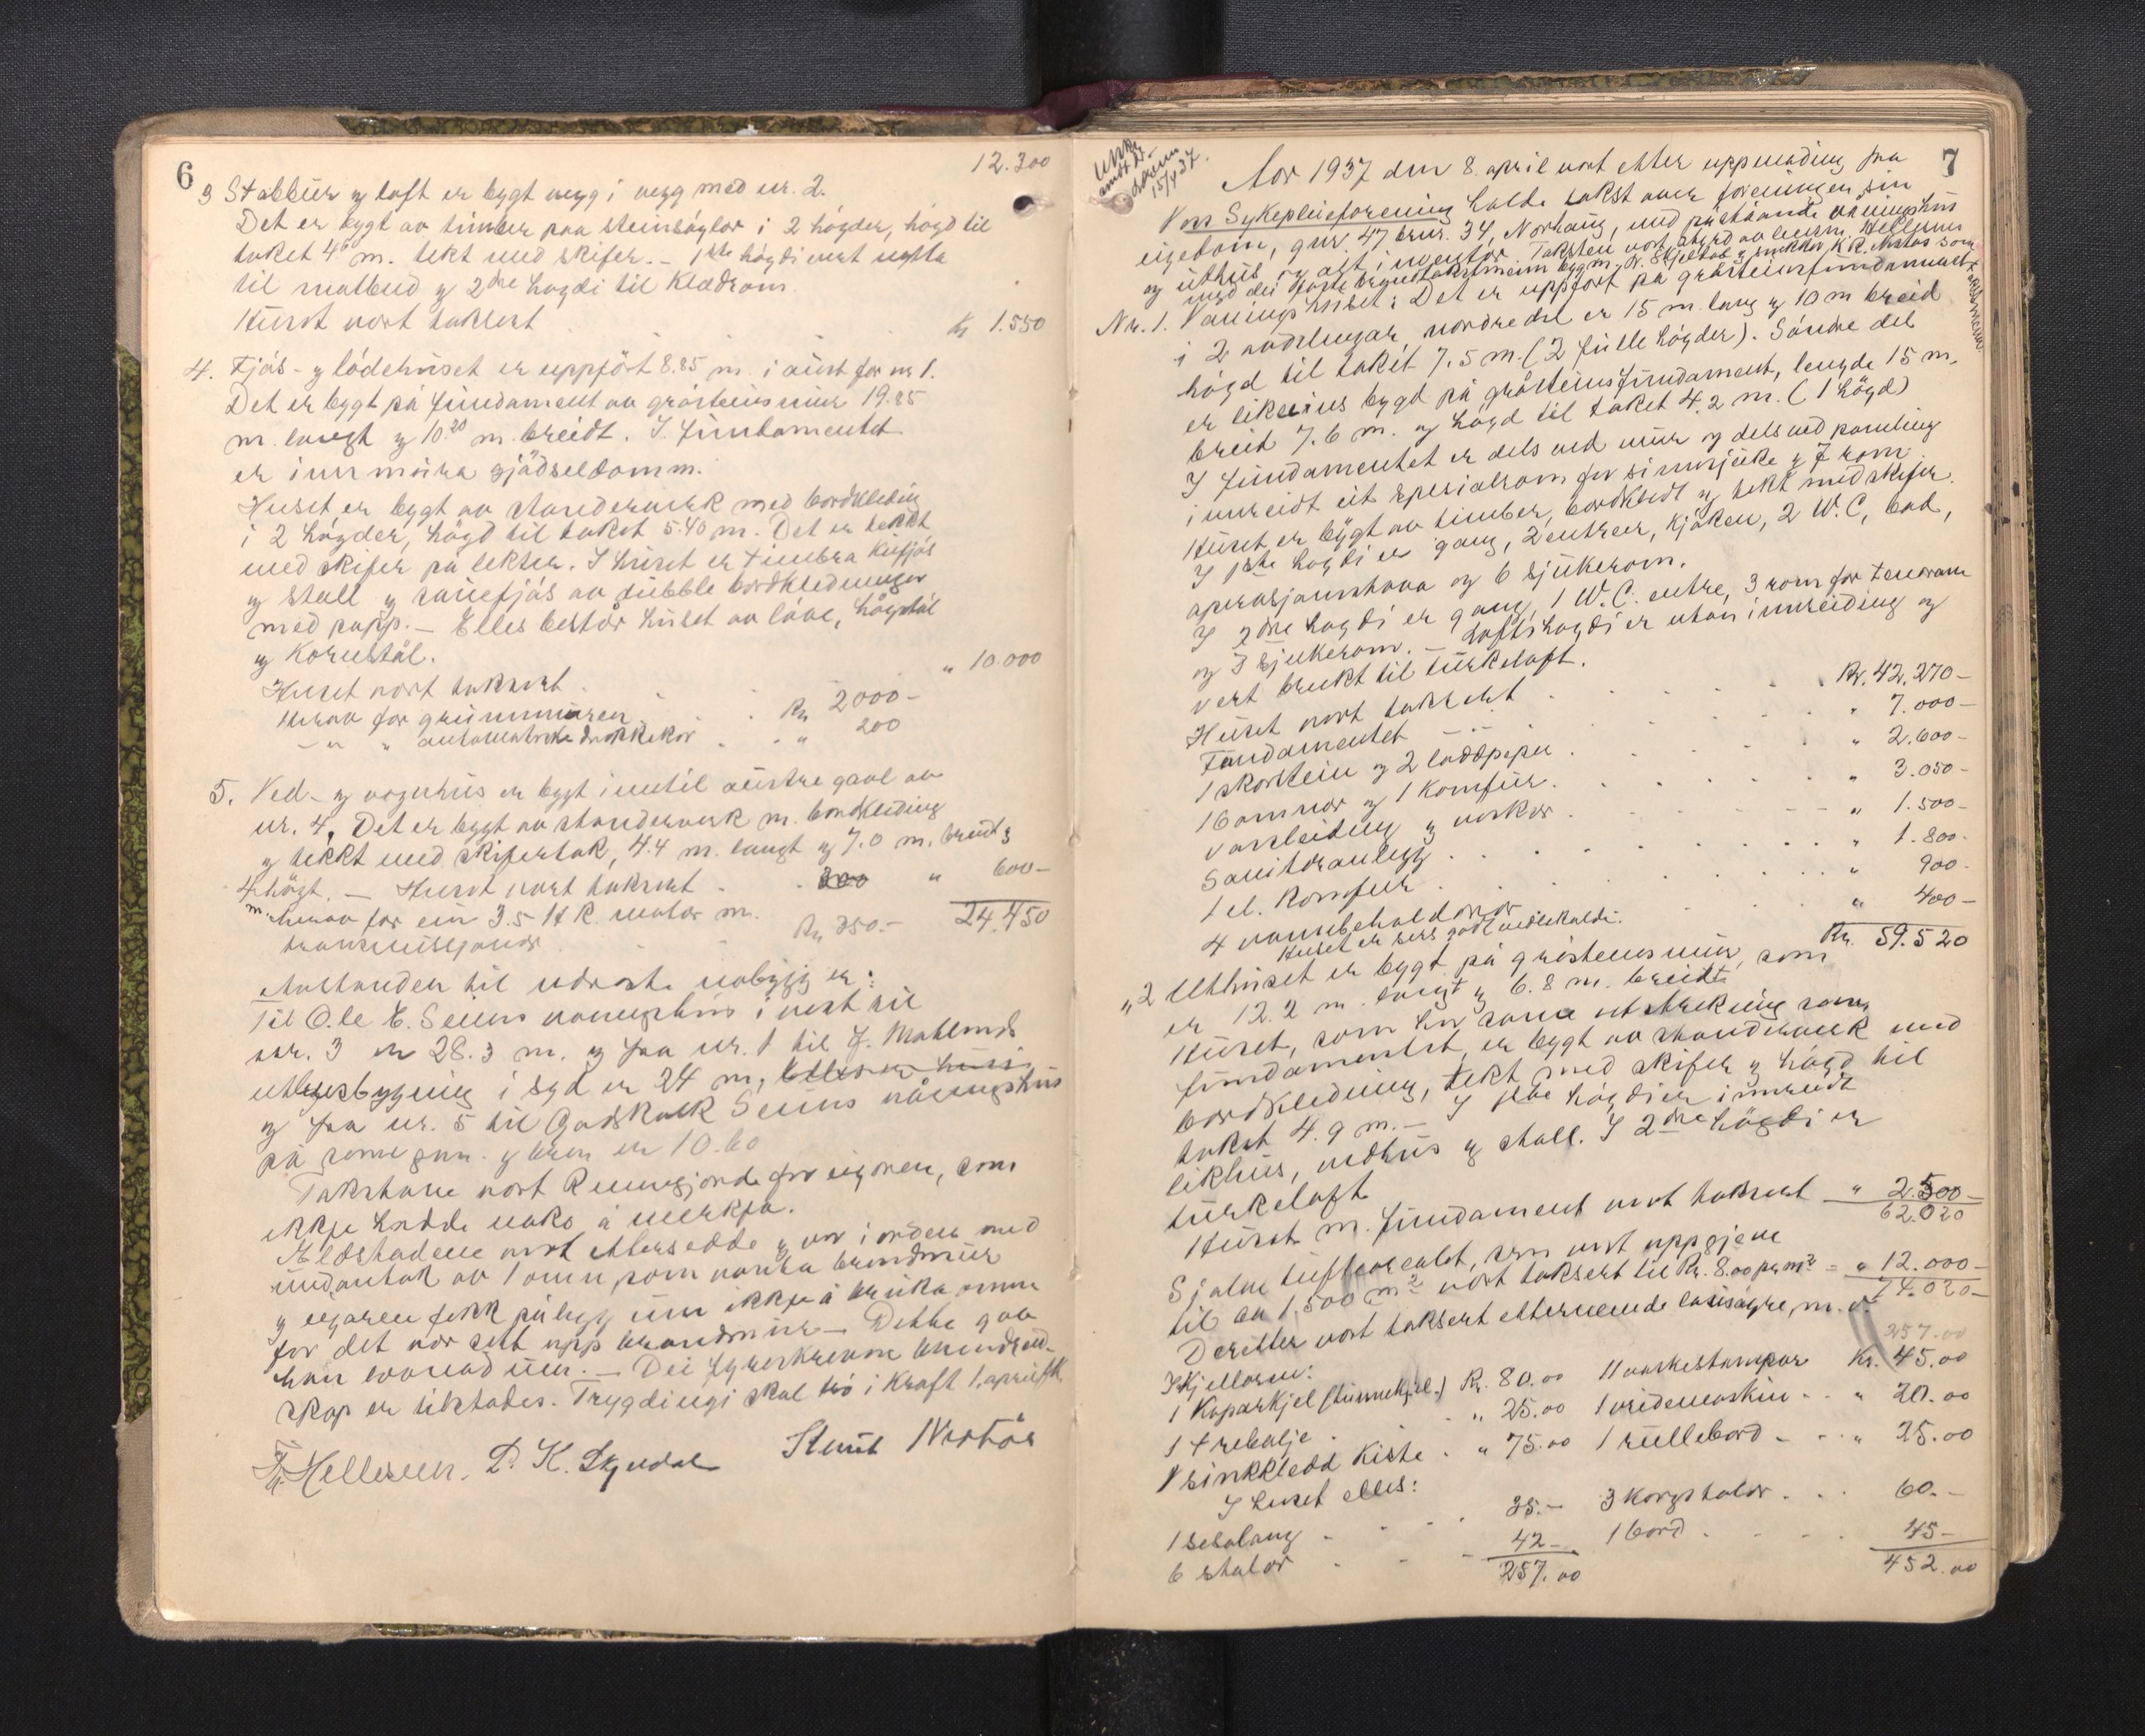 6
12.300
3 Stabbur og loft er bygt vegg i vegg med nr. 2.
Det er bygt av timber paa steinsöylor i 2 högder, högd til
taket 4.60 m. tekt med skifer. - 1ste högdi vert nytta
til matbud og 2dre högdi til Klædrom.
Huset vart taksert Kr 1.550
4. Fjös- og lödehuset er uppfört 8.85 m. i aust for nr 1.
Det er bygt på fundament av gråsteinsmur 19.85
m. langt og 10.20 m. breidt. I fundamentet
er innmúra gjödseldamm.
Huset er bygt av standerverk med bordkleding
i 2 högder, högd til taket 5.40 m. Det er tekkt
med skifer på lekter. I huset er timbra kufjös
og stall og sauefjös av dubble bordkledningar
med papp. - Elles består huset av låve, höystål
og Kornstål.
Huset vart taksert " 10.000
Herav for grunnmuren Kr 2000-
-"- " automatiske drikkekar " 200
5. Ved- og vognhus er bygt inntil austre gavl av
nr. 4. Det er bygt av standerverk m. bordkleiding
og tekkt med skifertak, 4.4 m. langt og 7.0 m. breidt og
4 m. högt. - Huset vart taksert 300 " 600-
herav for ein 3.5 H.K. motor m. Kr 350.- 24.450
transmisjonar
Avstanden til næraste nabygg er:
Til Ole E. Seims vaaningshus i vest til
nr. 3 er 28.3 m. og fra nr. 1 til J. Mælands
uthusbygning i syd er 24 m.,
og fra nr. 5 til Godskalk Seims våningshus
på same gnr. og bnr. er 10.60
Takstane vart kunngjorde for eigaren, som
ikkje hadde noko å merkja.
Eldstadene vart ettersedde og var i orden med
undantak av 1 omn som vanta brandmur
og eigaren fekk pålegg um ikkje å bruka omnen
för det var sett upp brandmur - Dette gav
han lovnad um. - Dei fyreskrevne brandreid-
skap er tilstades. Trygdingi skal tre i kraft 1. april fk.
Th. Hellesen. L. K. Skjendal Knut Nestås
7
Utskr.
sendt
15/4 37.
Aar 1937 den 8. april vart etter uppmoding fra
Voss Sykepleieforening halde takst over foreningen sin
eigedom, gnr 47 bnr. 34, Norhaug, med påståande våningshus
og uthus og alt inventar. Taksten vart styrd av lensm. Hellesen
med dei faste branntakstmenn bygm. O. Skjeltås og snikkar K. R. Nestås som
takstmenn.
Nr. 1. Vaaningshuset: Det er uppfört på gråsteinsfundament
i 2 avdelingar, nordre del er 15 m. lang og 10 m breid
högd til taket 7.5 m. (2 fulle högder). Söndre del
er likeeins bygd på gråsteinsfundament, lengde 15 m,
breid 7.6 m. og högd til taket 4.2 m. (1 högd)
I fundamentet er dels ved mur og dels ved paneling
innreidt eit spesialrom for sinnsjuke og 7 rom.
Huset er bygt av timber, bordkledt og tekt med skifer.
I 1ste högdi er gang, 2 entreer, kjöken, 2 W.C, bad,
operasjonsstova og 6 sjukerom.
I 2dre högdi er gang, 1 W.C. entre, 3 rom for tenarane
og 3 sjukerom. - Loftshögdi er utan innreiding og
vert brukt til turkeloft.
Huset vart taksert Kr. 42.270-
Fundamentet " 7.000-
1 skorstein og 2 luddpipir " 2.600-
16 omnar og 1 komfur " 3.050-
Vassleiding og vaskar " 1.500-
Sanitæranlegg " 1.800-
1 el. komfur " 900-
4 vannbehaldarar " 400-
Huset er sers godt vedlikaldi. Kr. 59.520
" 2 Uthuset er bygt på gråsteinsmur, som
er 12.2 m. langt og 6.8 m. breidt
Huset, som har same utstrekning som
fundamentet, er bygt av standerverk med
bordkledning, tekt med skifer og högd til
taket 4.9 m. - I 1ste högdi er innreidt
likhus, vedhus og stall. I 2dre högdi er
turkeloft
Huset m. fundament vart taksert " 2.500-
62.020
Sjølve tuftearealet, som vart uppgjeve
til ca 1.500 m2 vart taksert til kr. 8.00 pr. m2 = " 12.000-
74.020-
Deretter vart taksert etternemde lausøyre, m. v.
257.00
I Kjellaren:
1 Koparkjel (tunnekjel.) Kr. 80.00 11 vaskestampar Kr. 45.00
1 trebalje " 25.00 1 vridemaskin " 20.00
1 sinkkledd kiste " 75.00 1 rullebord " 25.00
I huset elles:
1 seselong 35.- 3 korgstolar 60.-
6 stolar 42- 1 bord 45-
257.00 452.00